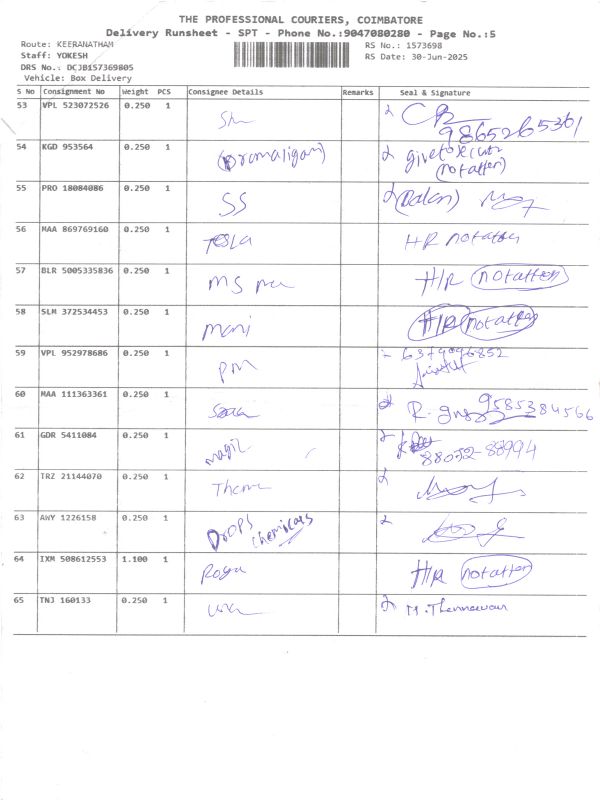 THE PROFESSIONAL COURIERS, COIMBATORE
Delivery Runsheet - SPT - Phone No.:9047080280 - Page No.:5
Route: KEERANATHAM RS No.: 1573698
Staff: YOKESH RS Date: 30-Jun-2025
DRS No.: DCJB157369805
Vehicle: Box Delivery
S No Consignment No Weight PCS Consignee Details Remarks Seal & Signature
53 VPL 523072526 0.250 1
9865265361
54 KGD 953564 0.250 1
(not atten)
55 PRO 18084086 0.250 1 SS (Balan)
56 MAA 869769160 0.250 1 TESLA HR not atten
57 BLR 5005335836 0.250 1 MS H/R not atten
58 SLM 372534453 0.250 1 Mani H/R not atten
59 VPL 952978686 0.250 1 PM 6379096852
60 MAA 111363361 0.250 1 9585384566
61 GDR 5411084 0.250 1 Magic 88072-88994
62 TRZ 21144070 0.250 1
63 AWY 1226158 0.250 1 DROPS
chemicals
64 IXM 508612553 1.100 1 Roga H/R not atten
65 TNJ 160133 0.250 1 M. Thennavan